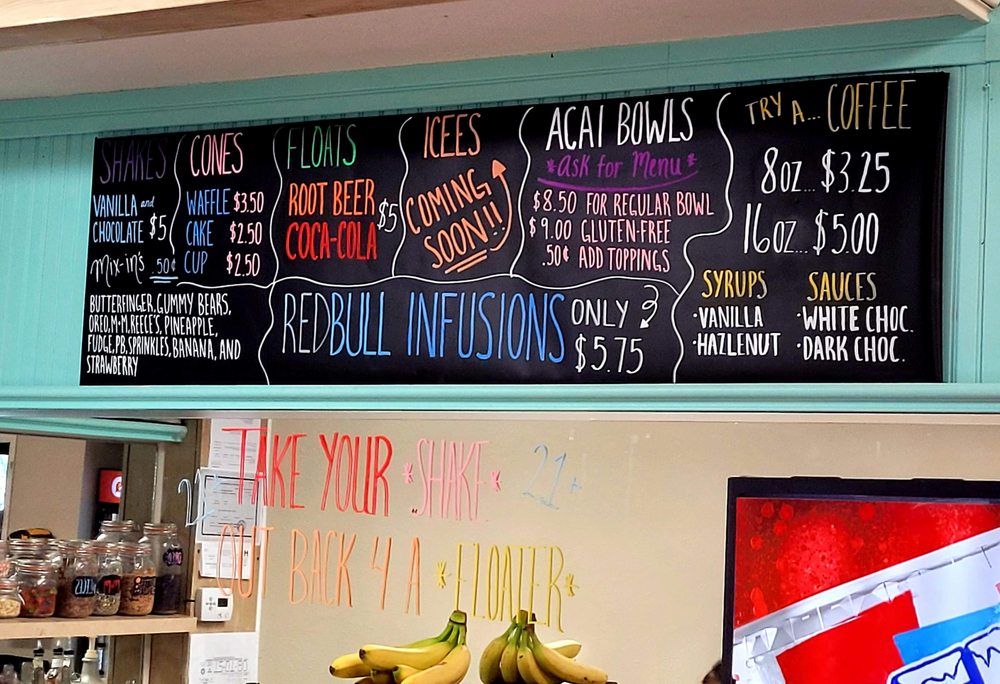 SHAKES
VANILLA and
CHOCOLATE $5
Mix-in's .50¢
BUTTERFINGER, GUMMY BEARS,
OREO, M+M, REECE'S, PINEAPPLE,
FUDGE, PB, SPRINKLES, BANANA, AND
STRAWBERRY
CONES
WAFFLE $3.50
CAKE $2.50
CUP $2.50
FLOATS
ROOT BEER $5
COCA-COLA
ICEES
COMING
SOON!!
ACAI BOWLS
*Ask for Menu*
$8.50 FOR REGULAR BOWL
$9.00 GLUTEN-FREE
.50¢ ADD TOPPINGS
REDBULL INFUSIONS ONLY
$5.75
TRY A... COFFEE
8oz... $3.25
16oz... $5.00
SYRUPS
·VANILLA
·HAZLENUT
SAUCES
·WHITE CHOC.
·DARK CHOC.
TAKE YOUR *SHAKE* 21+
OUT BACK 4 A *FLOATER*